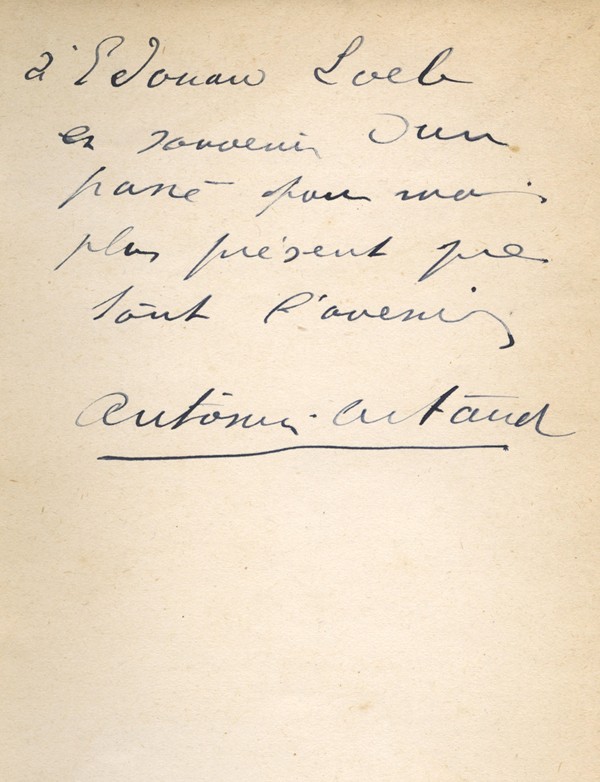 à Edouard Loeb
en souvenir d'un
passé pour moi
plus présent que
tout l'avenir
Antonin Artaud